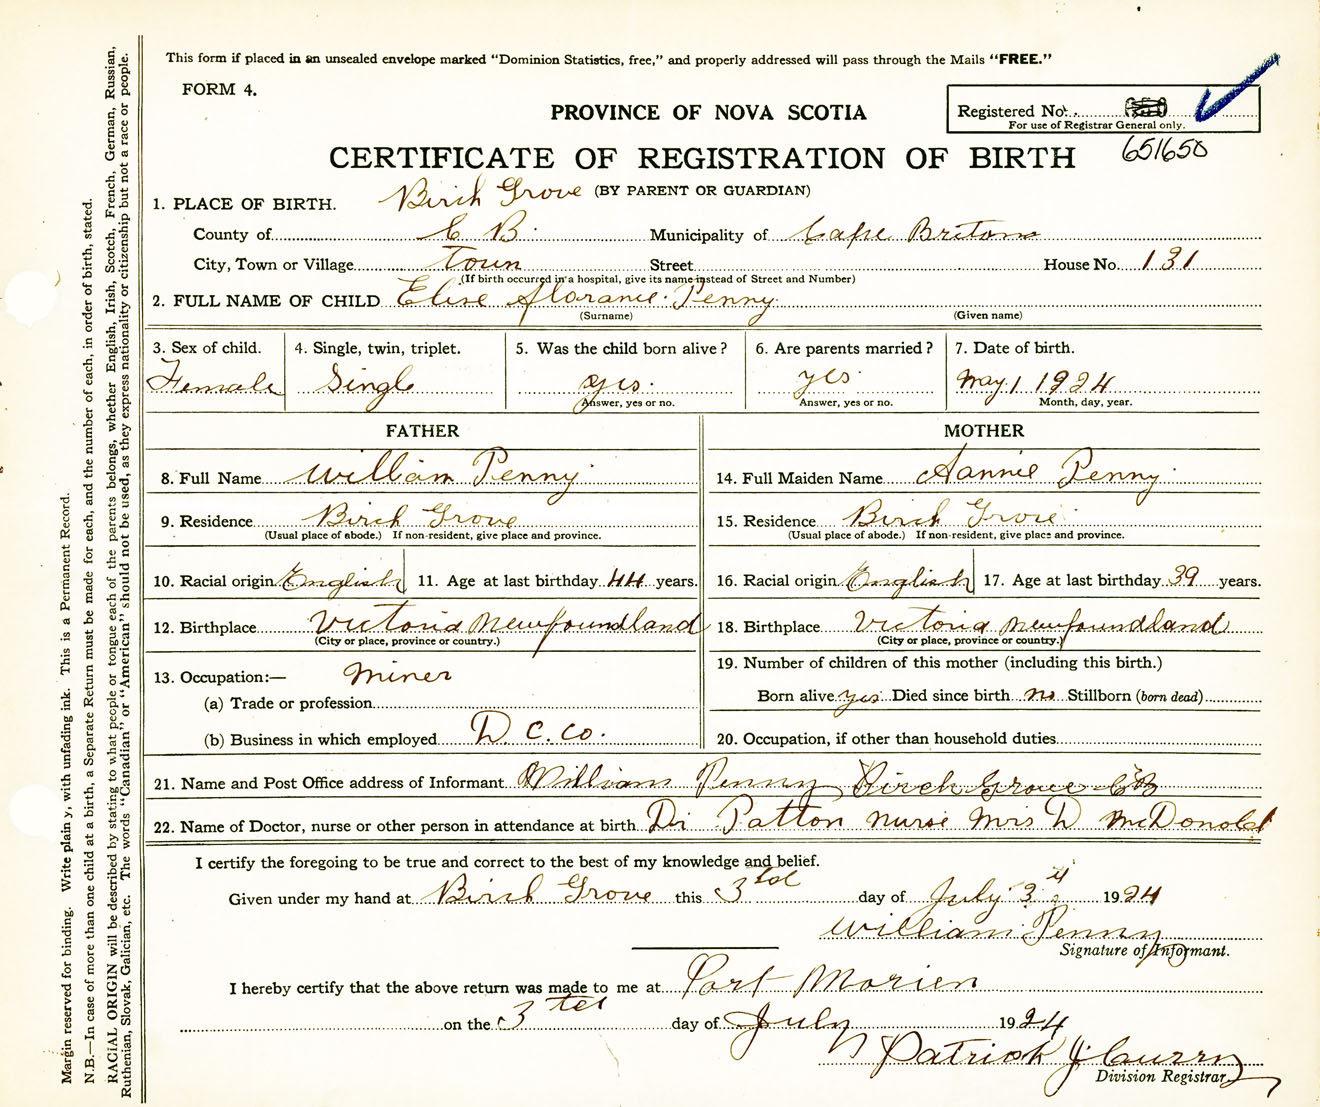 This form if placed in an unsealed envelope marked "Dominion Statistics, free," and properly addressed will pass through the Mails "FREE."
FORM 4.
PROVINCE OF NOVA SCOTIA
Registered No.
For use of Registrar General only.
651650
CERTIFICATE OF REGISTRATION OF BIRTH
(BY PARENT OR GUARDIAN)
1. PLACE OF BIRTH. Birch Grove
County of C B. Municipality of Cape Breton
City, Town or Village Town Street House No. 131
(If birth occurred in a hospital, give its name instead of Street and Number)
2. FULL NAME OF CHILD Elise Floranie Penny
(Surname) (Given name)
3. Sex of child. 4. Single, twin, triplet. 5. Was the child born alive? 6. Are parents married? 7. Date of birth.
Female Single yes. yes. May 1 1924
Answer, yes or no. Answer, yes or no. Month, day, year.
FATHER MOTHER
8. Full Name William Penny 14. Full Maiden Name Annie Penny
9. Residence Birch Grove 15. Residence Birch Grove
(Usual place of abode.) If non-resident, give place and province. (Usual place of abode.) If non-resident, give place and province.
10. Racial origin English 11. Age at last birthday 44 years. 16. Racial origin English 17. Age at last birthday 39 years.
12. Birthplace Victoria Newfoundland 18. Birthplace Victoria Newfoundland
(City or place, province or country.) (City or place, province or country.)
13. Occupation:— Miner 19. Number of children of this mother (including this birth.)
(a) Trade or profession Born alive yes Died since birth no Stillborn (born dead)
(b) Business in which employed D. C. Co. 20. Occupation, if other than household duties
21. Name and Post Office address of Informant William Penny Birch Grove CB
22. Name of Doctor, nurse or other person in attendance at birth Dr Patton nurse Mrs D McDonald
I certify the foregoing to be true and correct to the best of my knowledge and belief.
Given under my hand at Birch Grove this 3 day of July 3 1924
William Penny
Signature of Informant.
I hereby certify that the above return was made to me at Port Morien
on the 3 day of July 1924
Patrick J. Curry
Division Registrar
Margin reserved for binding. Write plain y, with unfading ink. This is a Permanent Record.
N.B.—In case of more than one child at a birth, a Separate Return must be made for each, and the number of each, in order of birth, stated.
RACIAL ORIGIN will be described by stating to what people or tongue each of the parents belongs, whether English, Irish, Scotch, French, German, Russian,
Ruthenian, Slovak, Galician, etc. The words "Canadian" or "American" should not be used, as they express nationality or citizenship but not a race or people.